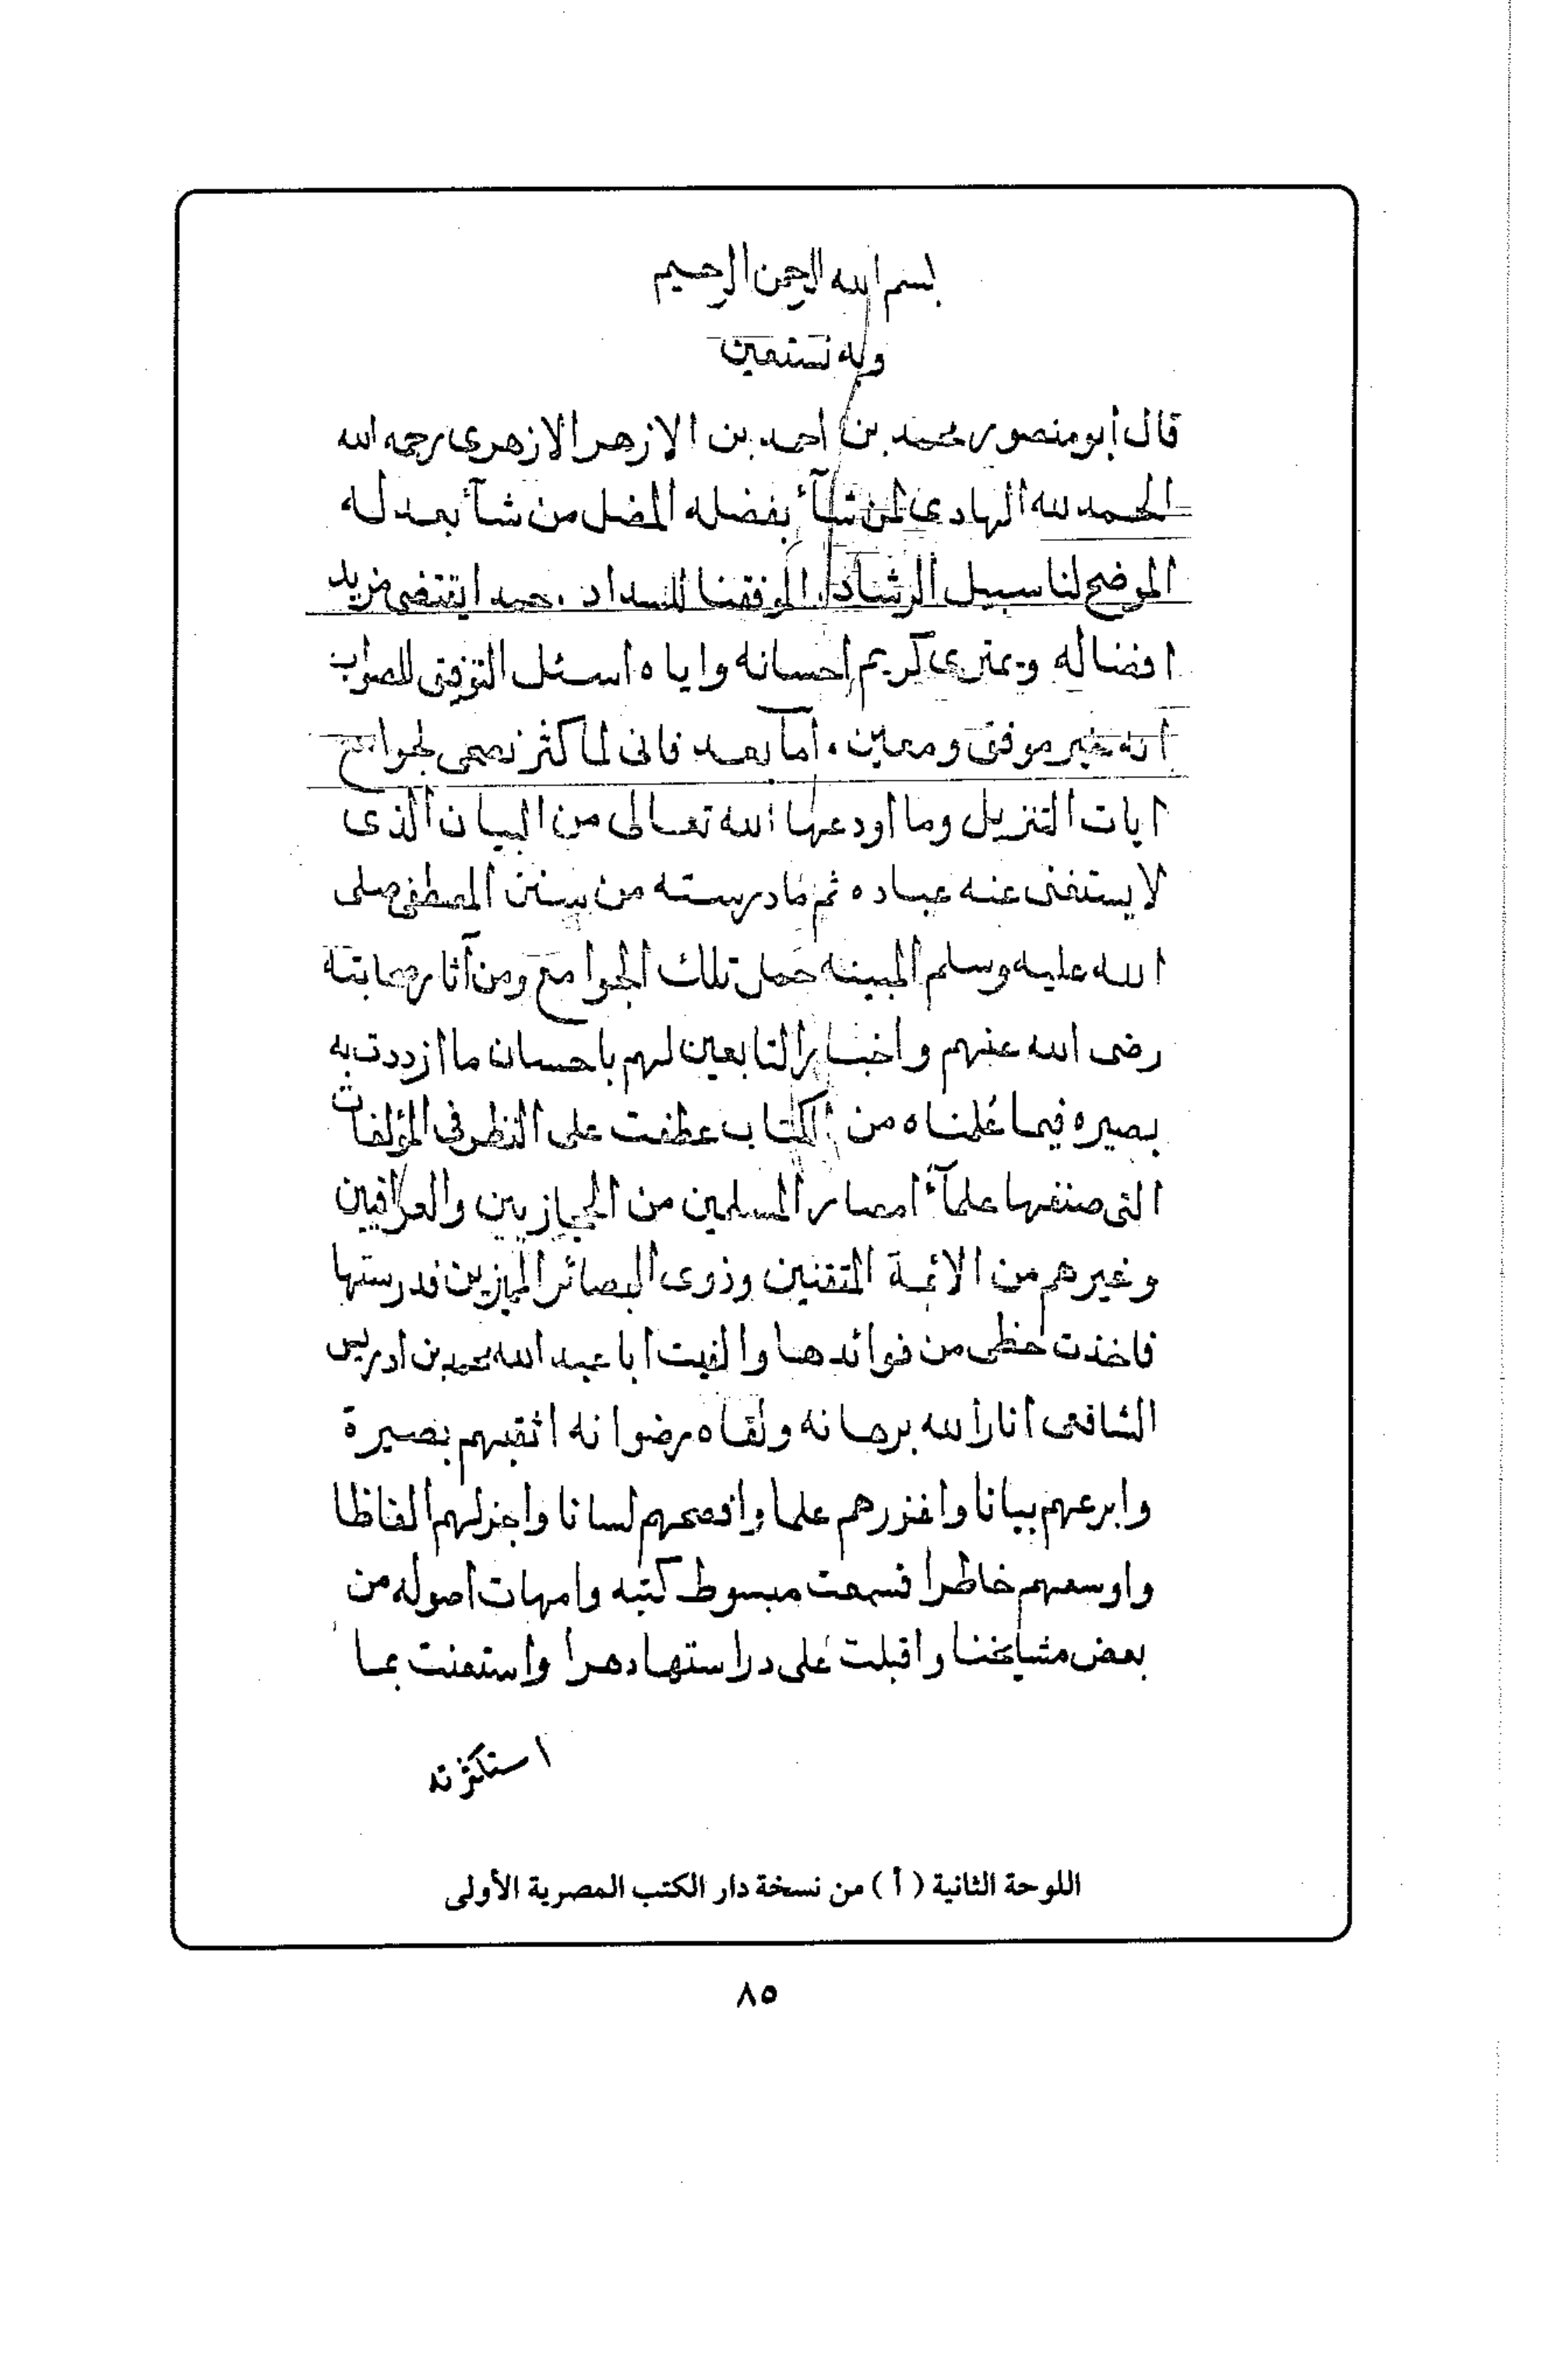 بسم الله الرحمن الرحيم
وبه نستعين
قال أبو منصور محمد بن احمد بن الازهر الازهرى رحمه الله
الحمد لله الهادى لمن شآء بفضله المضل من شآء بعدله
الموضح لنا سبيل الرشاد الموفقنا للسداد . حمدا يقتضى مزيد
افضاله ويمترى كريم إحسانه واياه اسئل التوفيق للصواب
انه خير موفق ومعين . أمّا بعد فانى لما كثر نصحى لجوامع
ايات التنزيل وما أودعها الله تعالى من البيان الذى
لا يستغنى عنه عباده ثم مادرسته من سنن المصطفى صلى
الله عليه وسلم المبينه حمل تلك الجوامع ومن آثار صحابته
رضى الله عنهم واخبار التابعين لهم باحسان ما ازددت به
بصيره فيما عُلمناه من الكتاب عطفت على النظر فى المؤلفات
التى صنفها علمآء امصار المسلمين من الحجازيين والعراقيين
وغيرهم من الائمة المتقنين وذوى البصائر المميزين فدرستها
فاخذت حظى من فوائدها والفيت ابا عبد الله محمد بن ادريس
الشافعى انار الله برهانه ولقاه رضوانه اثقبهم بصيرة
وابرعهم بيانا واغزرهم علما وافصحهم لسانا واجزلهم الفاظا
واوسعهم خاطرا فسمعت مبسوط كتبه وامهات اصوله من
بعض مشايخنا واقبلت على دراستها دهرا واستعنت بما
استكثرته
اللوحة الثانية ( أ ) من نسخة دار الكتب المصرية الأولى
٨٥